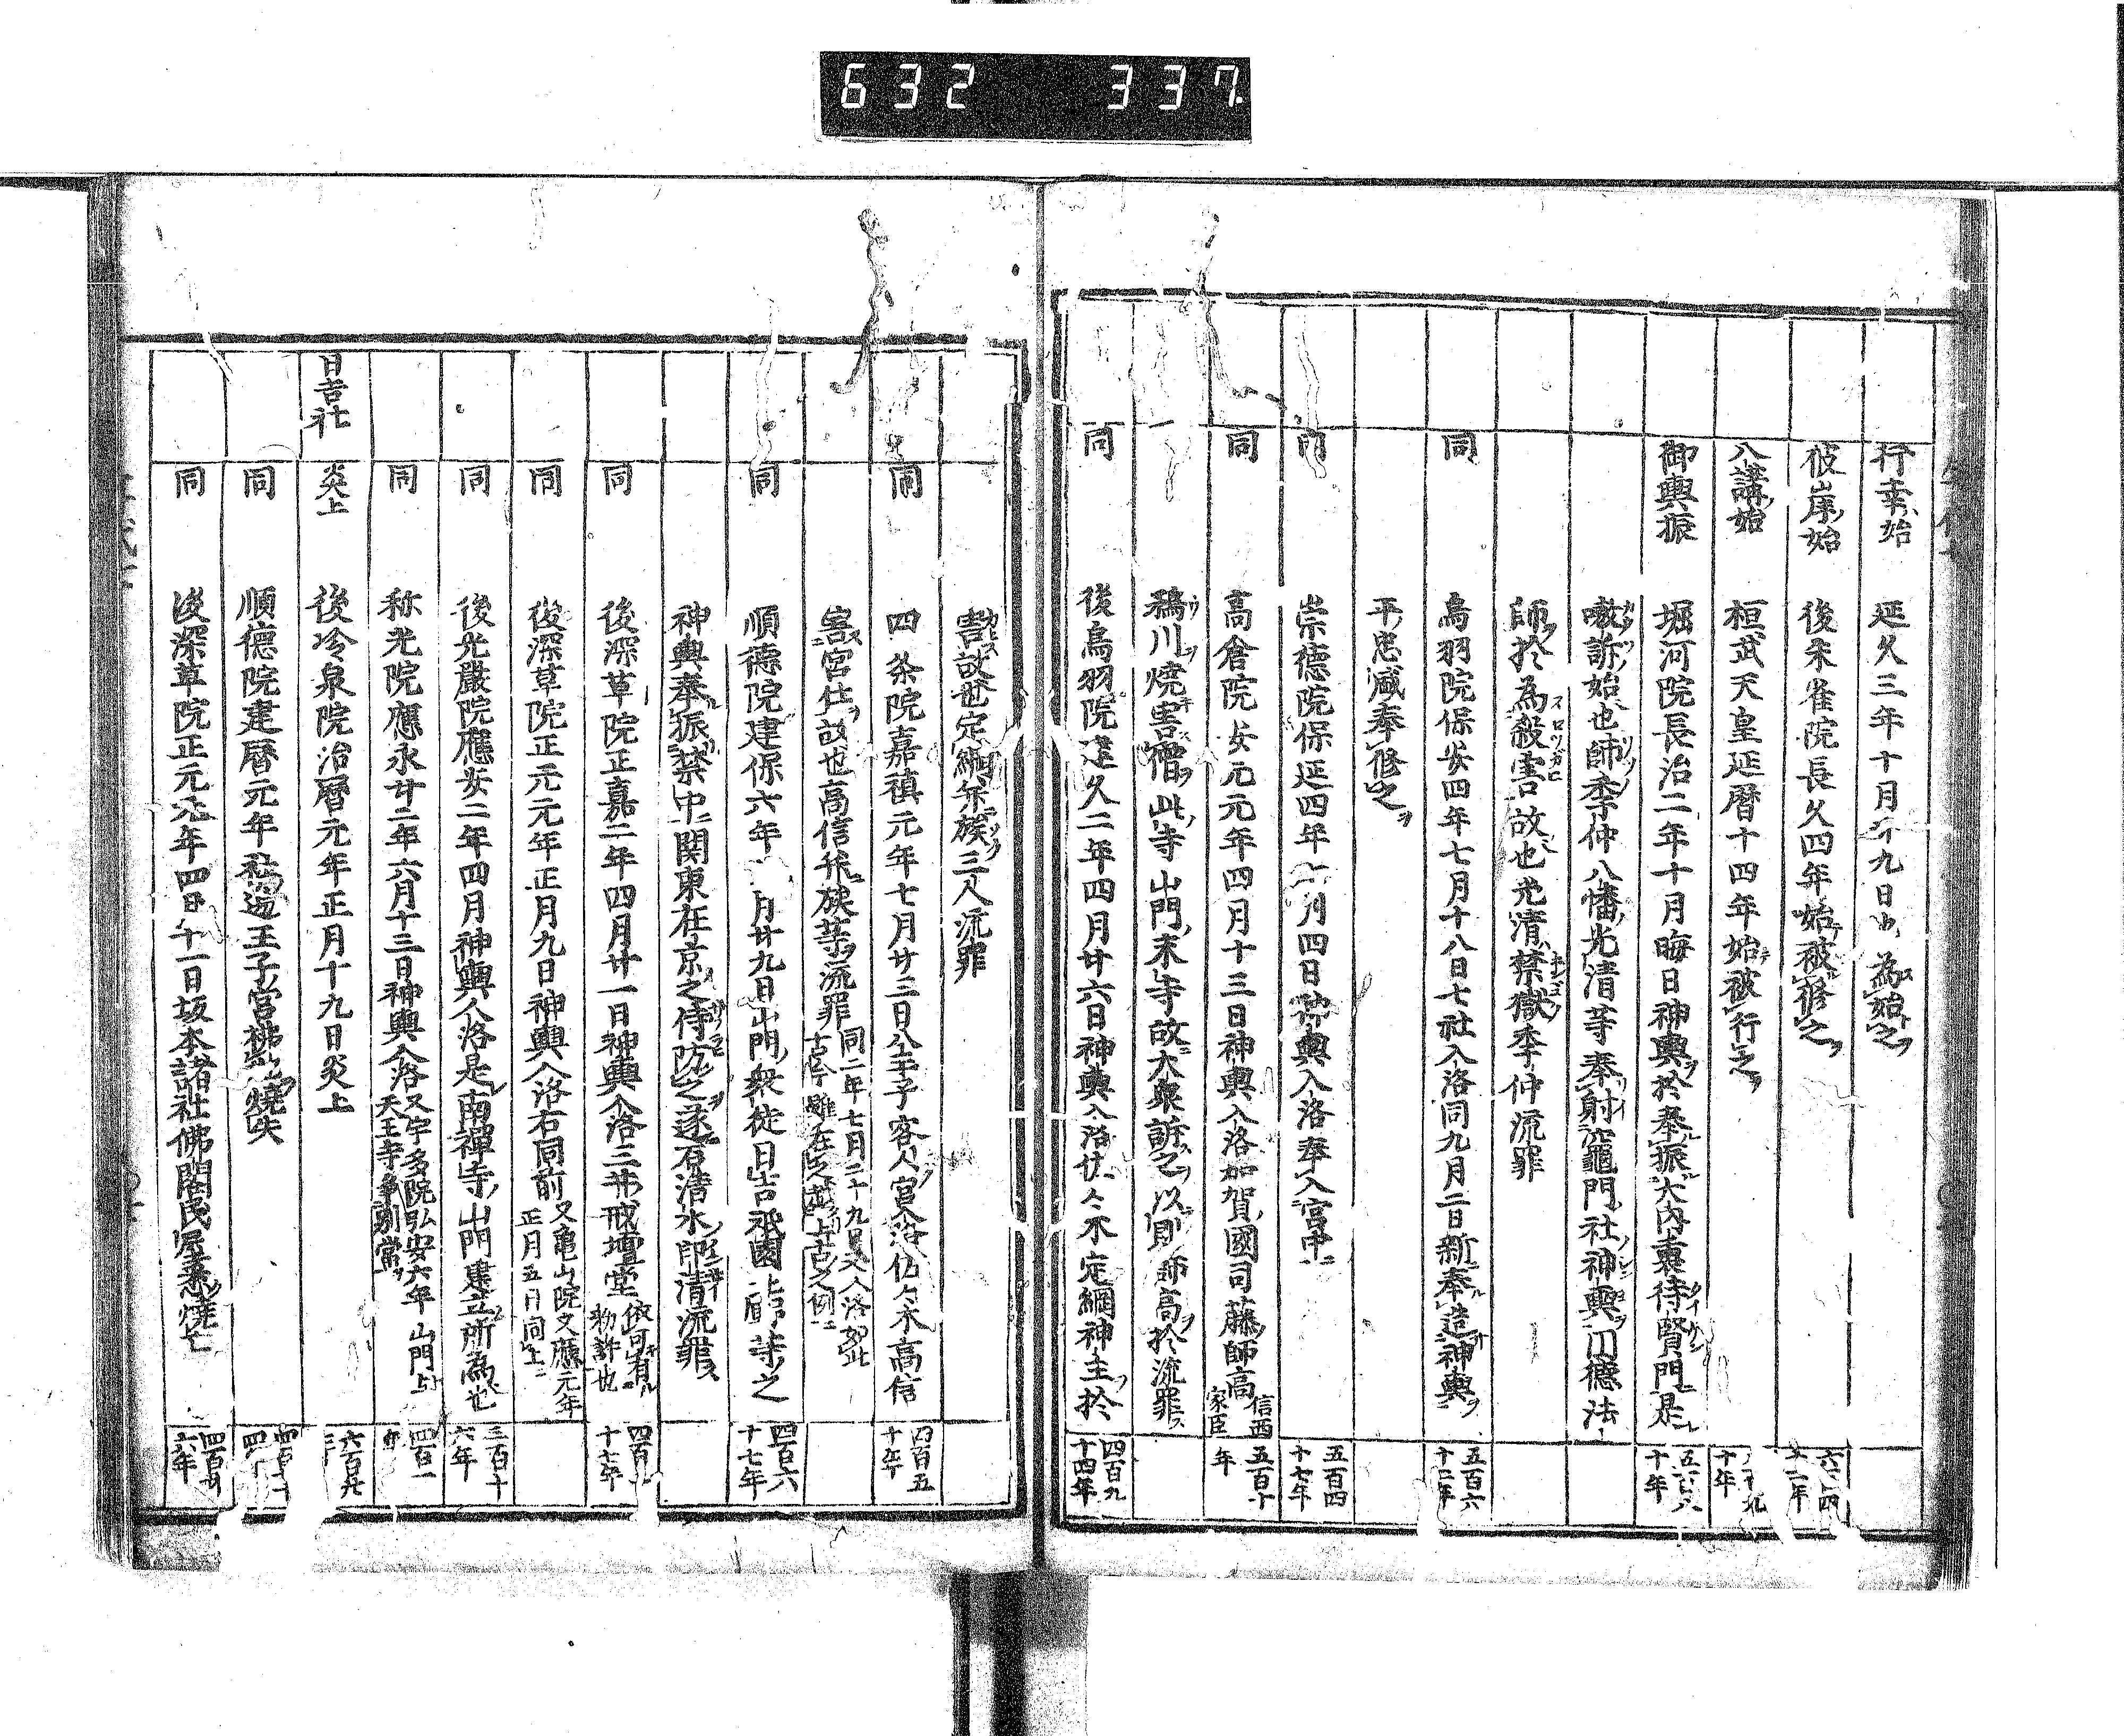 632 337
行幸始 延久三年十月廿九日 為始之
彼岸始 後朱雀院長久四年始被修之
八講始 桓武天皇延暦十四年始被行之
御輿振 堀河院長治二年十月晦日神輿於奉振大内裏待賢門是
嗷訴始也師季仲八幡光清等奉射竈門社神輿 德法
師於為殺害故也光清禁獄季仲流罪
同 鳥羽院保安四年七月十八日七社入洛同九月二日新奉造神輿 五百六十二年
平忠盛奉修之
同 崇德院保延四年 月四日神輿入洛奉入宮中 五百四十七年
同 高倉院安元元年四月十三日神輿入洛加賀國司藤師高 信西家臣 五百十年
鵜川焼害僧此寺山門末寺故大衆訴之以則師高於流罪
同 後鳥羽院建久二年四月廿六日神輿入洛佐々木定綱神主於 四百九十四年
害故也定綱并族三人流罪
同 四条院嘉禎元年七月廿三日八王子客人宮入洛佐々木高信 四百五十年
害宮仕故也高信并族等流罪 同二年七月二十九日又入洛如此
古今雖在之越上古之例
同 順德院建保六年 月廿九日山門衆徒日吉祇園 等之 四百六十七年
神輿奉振禁中関東在京之侍防之遂石清水 清流罪
同 後深草院正嘉二年四月廿一日神輿入洛三井戒壇堂 依可有
勅許也 十七年
同 後深草院正元元年正月九日神輿入洛右同前 又亀山院文應元年
正月五日同上
同 後光嚴院應安二年四月神輿入洛是南禪寺山門建立所為也 三百十六年
同 称光院應永廿二年六月十三日神輿入洛 又宇多院弘安六年山門与
天王寺争別當 四百一年
日吉社 炎上 後冷泉院治曆元年正月十九日炎上 六百廿
同 順德院建曆元年社邉王子宮 焼失
同 後深草院正元元年四月十一日坂本諸社佛閣民屋悉焼亡